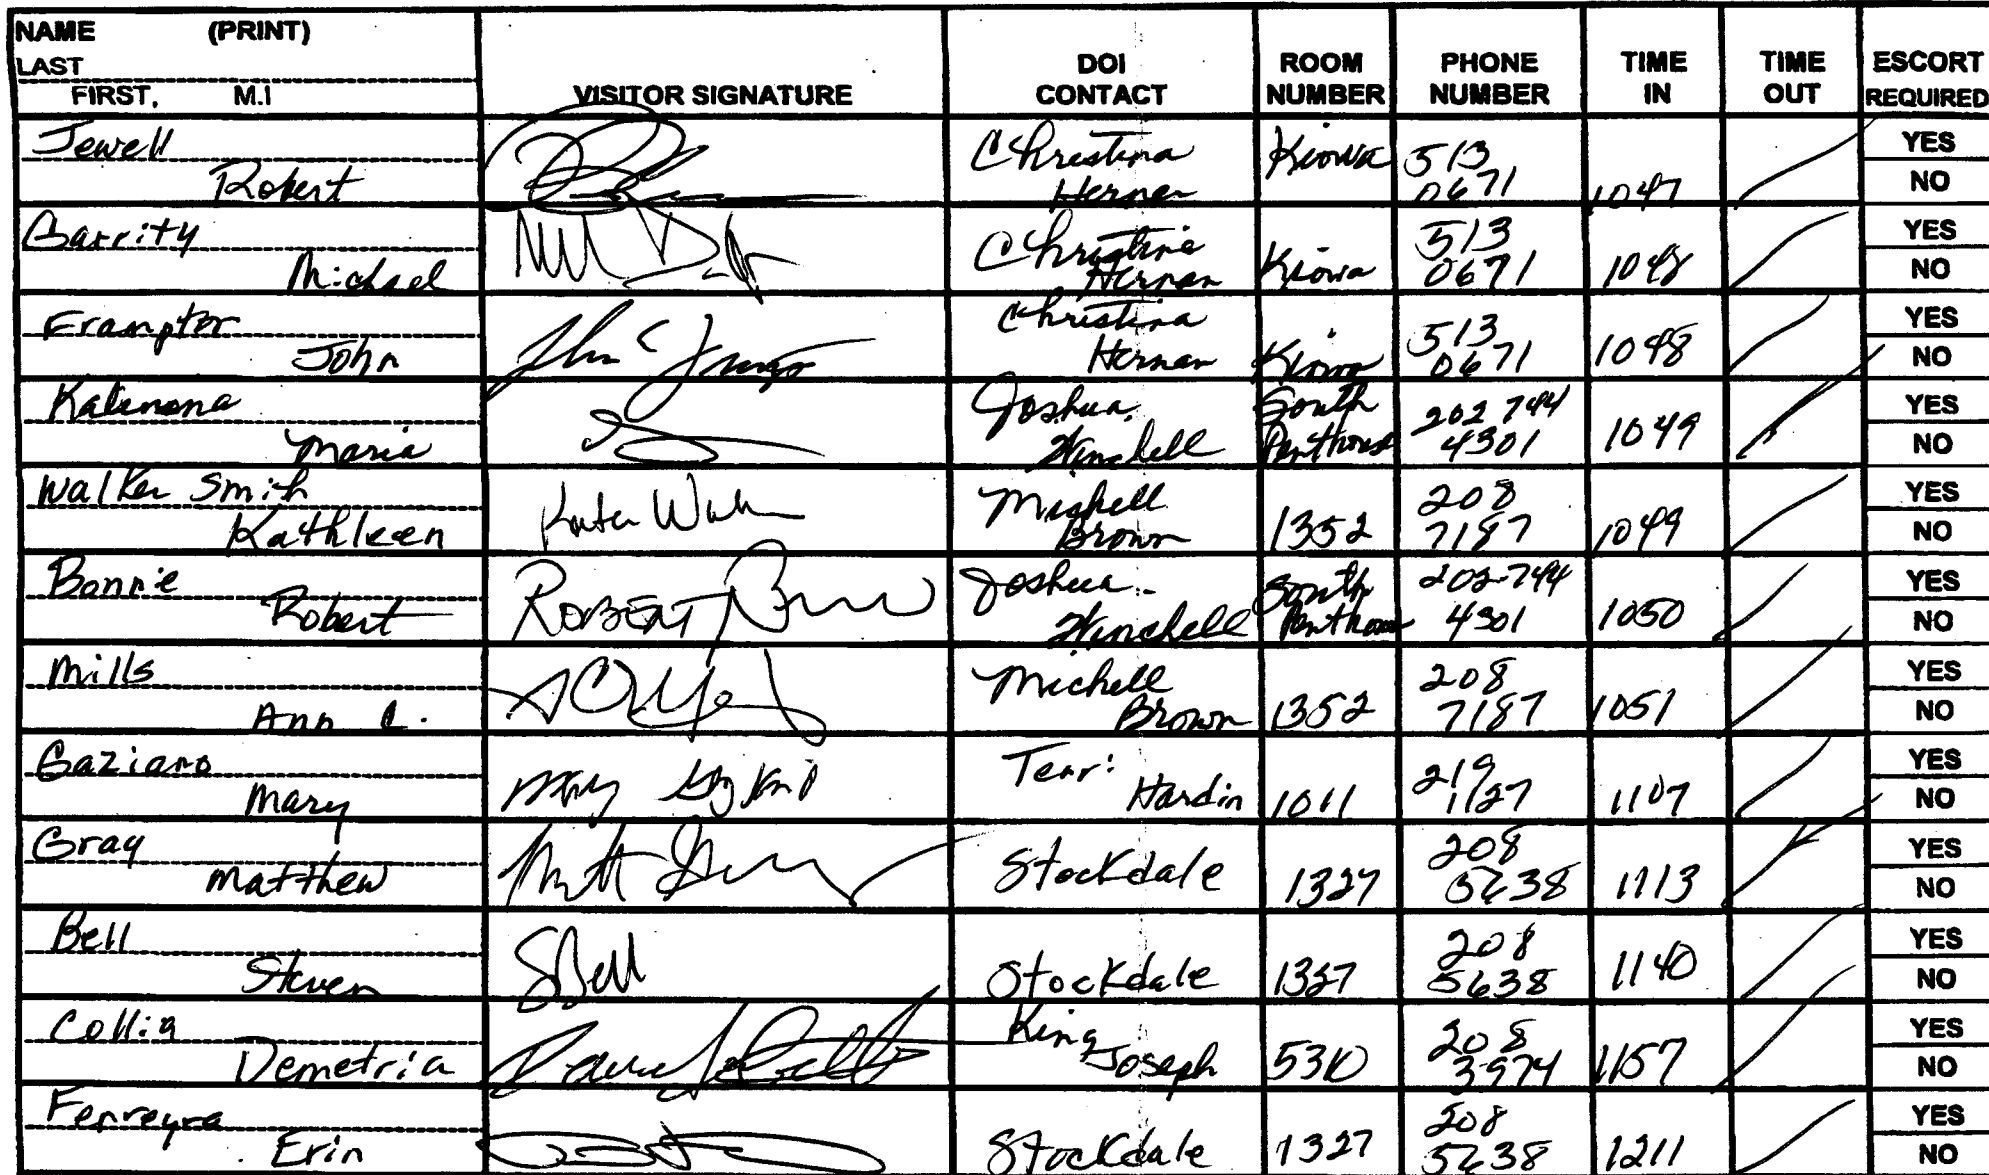 NAME (PRINT)
LAST
FIRST, M.I
VISITOR SIGNATURE
DOI CONTACT
ROOM NUMBER
PHONE NUMBER
TIME IN
TIME OUT
ESCORT REQUIRED
Jewell
Robert
Christina Hernen
Kiowa
513 0671
1047
YES
NO
Garrity
Michael
Christine Hernen
Kiowa
513 0671
1048
YES
NO
Frampton
John
Christina Hernan
Kiowa
513 0671
1048
YES
NO
Maria
Joshua Winchell
South Penthouse
202 744 4301
1049
YES
NO
Walker Smih
Kathleen
Brown
1352
208 7187
1049
YES
NO
Robert
ROBERT
Joshua Winchell
South
202-744 4301
1050
YES
NO
Mills
Ann C.
Michell Brown
1352
208 7187
1051
YES
NO
Gaziano
Mary
Mary
Hardin
1011
219 1127
1107
YES
NO
Gray
Matthew
Matt
Stockdale
1327
208 5638
1113
YES
NO
Bell
Steven
SBell
Stockdale
1327
208 5638
1140
YES
NO
Demetria
King Joseph
5310
208 3974
1157
YES
NO
Ferreyra
Erin
Stockdale
1327
208 5638
1211
YES
NO